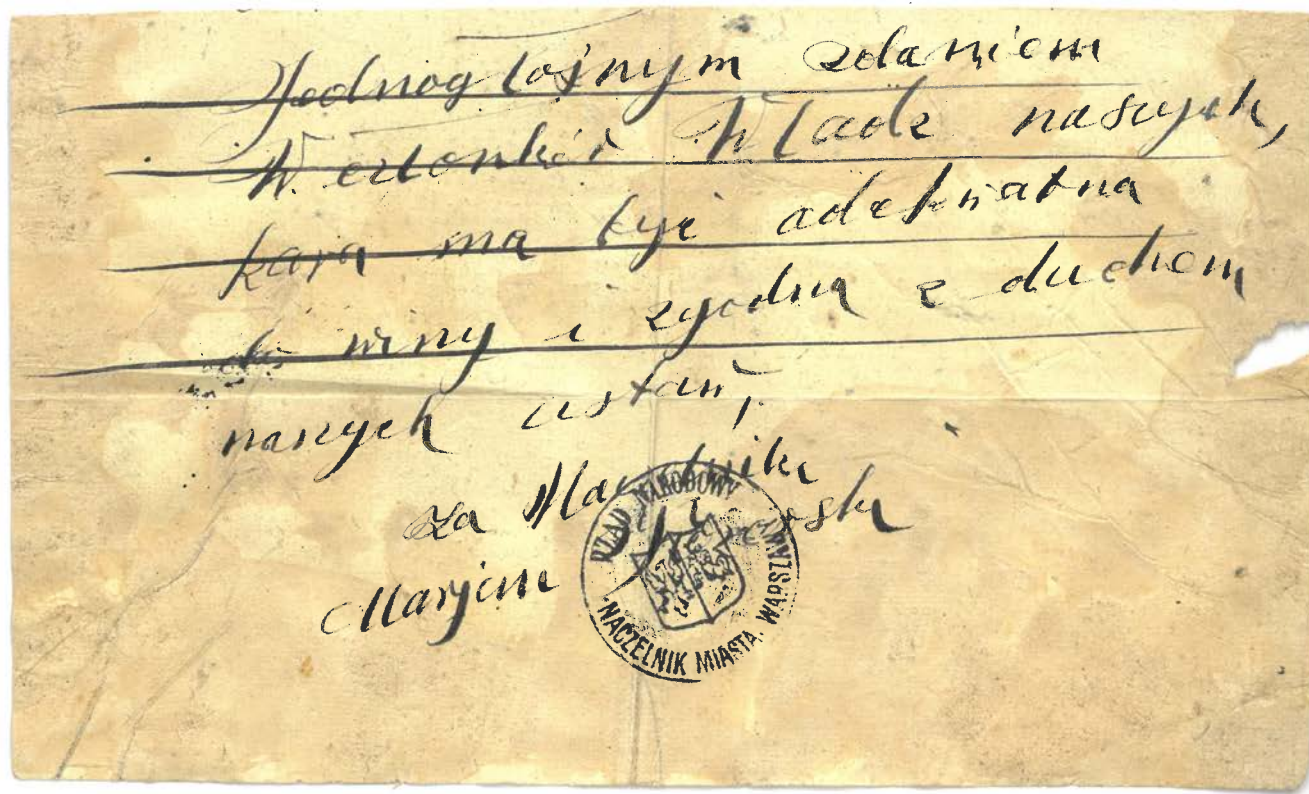 Jednogłośnym zdaniem
W. członków Władz naszych,
kara ma być adekwatna
do winy i zgodna z duchem
naszych ustaw,
Za Naczelnika
Marjan
RZĄD NARODOWY
NACZELNIK MIASTA WARSZAWY